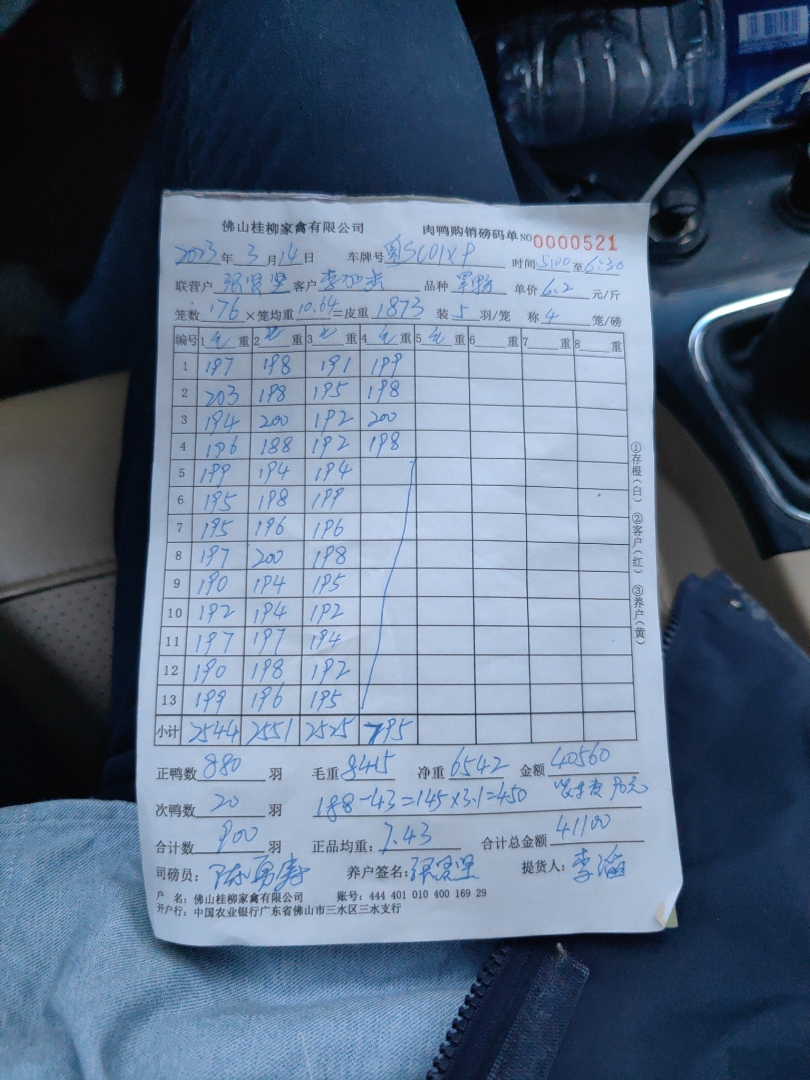 佛山桂柳家禽有限公司 肉鸭购销磅码单 NO 0000521
2023年3月14日 车牌号 粤SC01XP 时间 5:00至6:30
联营户 张贤坚 客户 李加 品种 单价 6.2 元/斤
笼数 176 ×笼均重 10.64 =皮重 1873 装 5 羽/笼 称 4 笼/磅
编号 1 毛 重 2 毛 重 3 毛 重 4 毛 重 5 毛 重 6 重 7 重 8 重
1 197 198 191 199
2 203 198 195 198
3 194 200 192 200
4 196 188 192 198
5 199 194 194
6 195 198 199
7 195 196 196
8 197 200 198
9 190 194 195
10 192 194 192
11 197 197 194
12 190 198 192
13 199 196 195
小计 2544 2551 2525 795
正鸭数 880 羽 毛重 8415 净重 6542 金额 40560
次鸭数 20 羽 188-43=145×3.1=450 90元
合计数 900 羽 正品均重: 7.43 合计总金额 41100
司磅员: 陈勇寿 养户签名: 张贤坚 提货人: 李滔
户 名: 佛山桂柳家禽有限公司 账号: 444 401 010 400 169 29
开户行: 中国农业银行广东省佛山市三水区三水支行
①存根(白) ②客户(红) ③养户(黄)